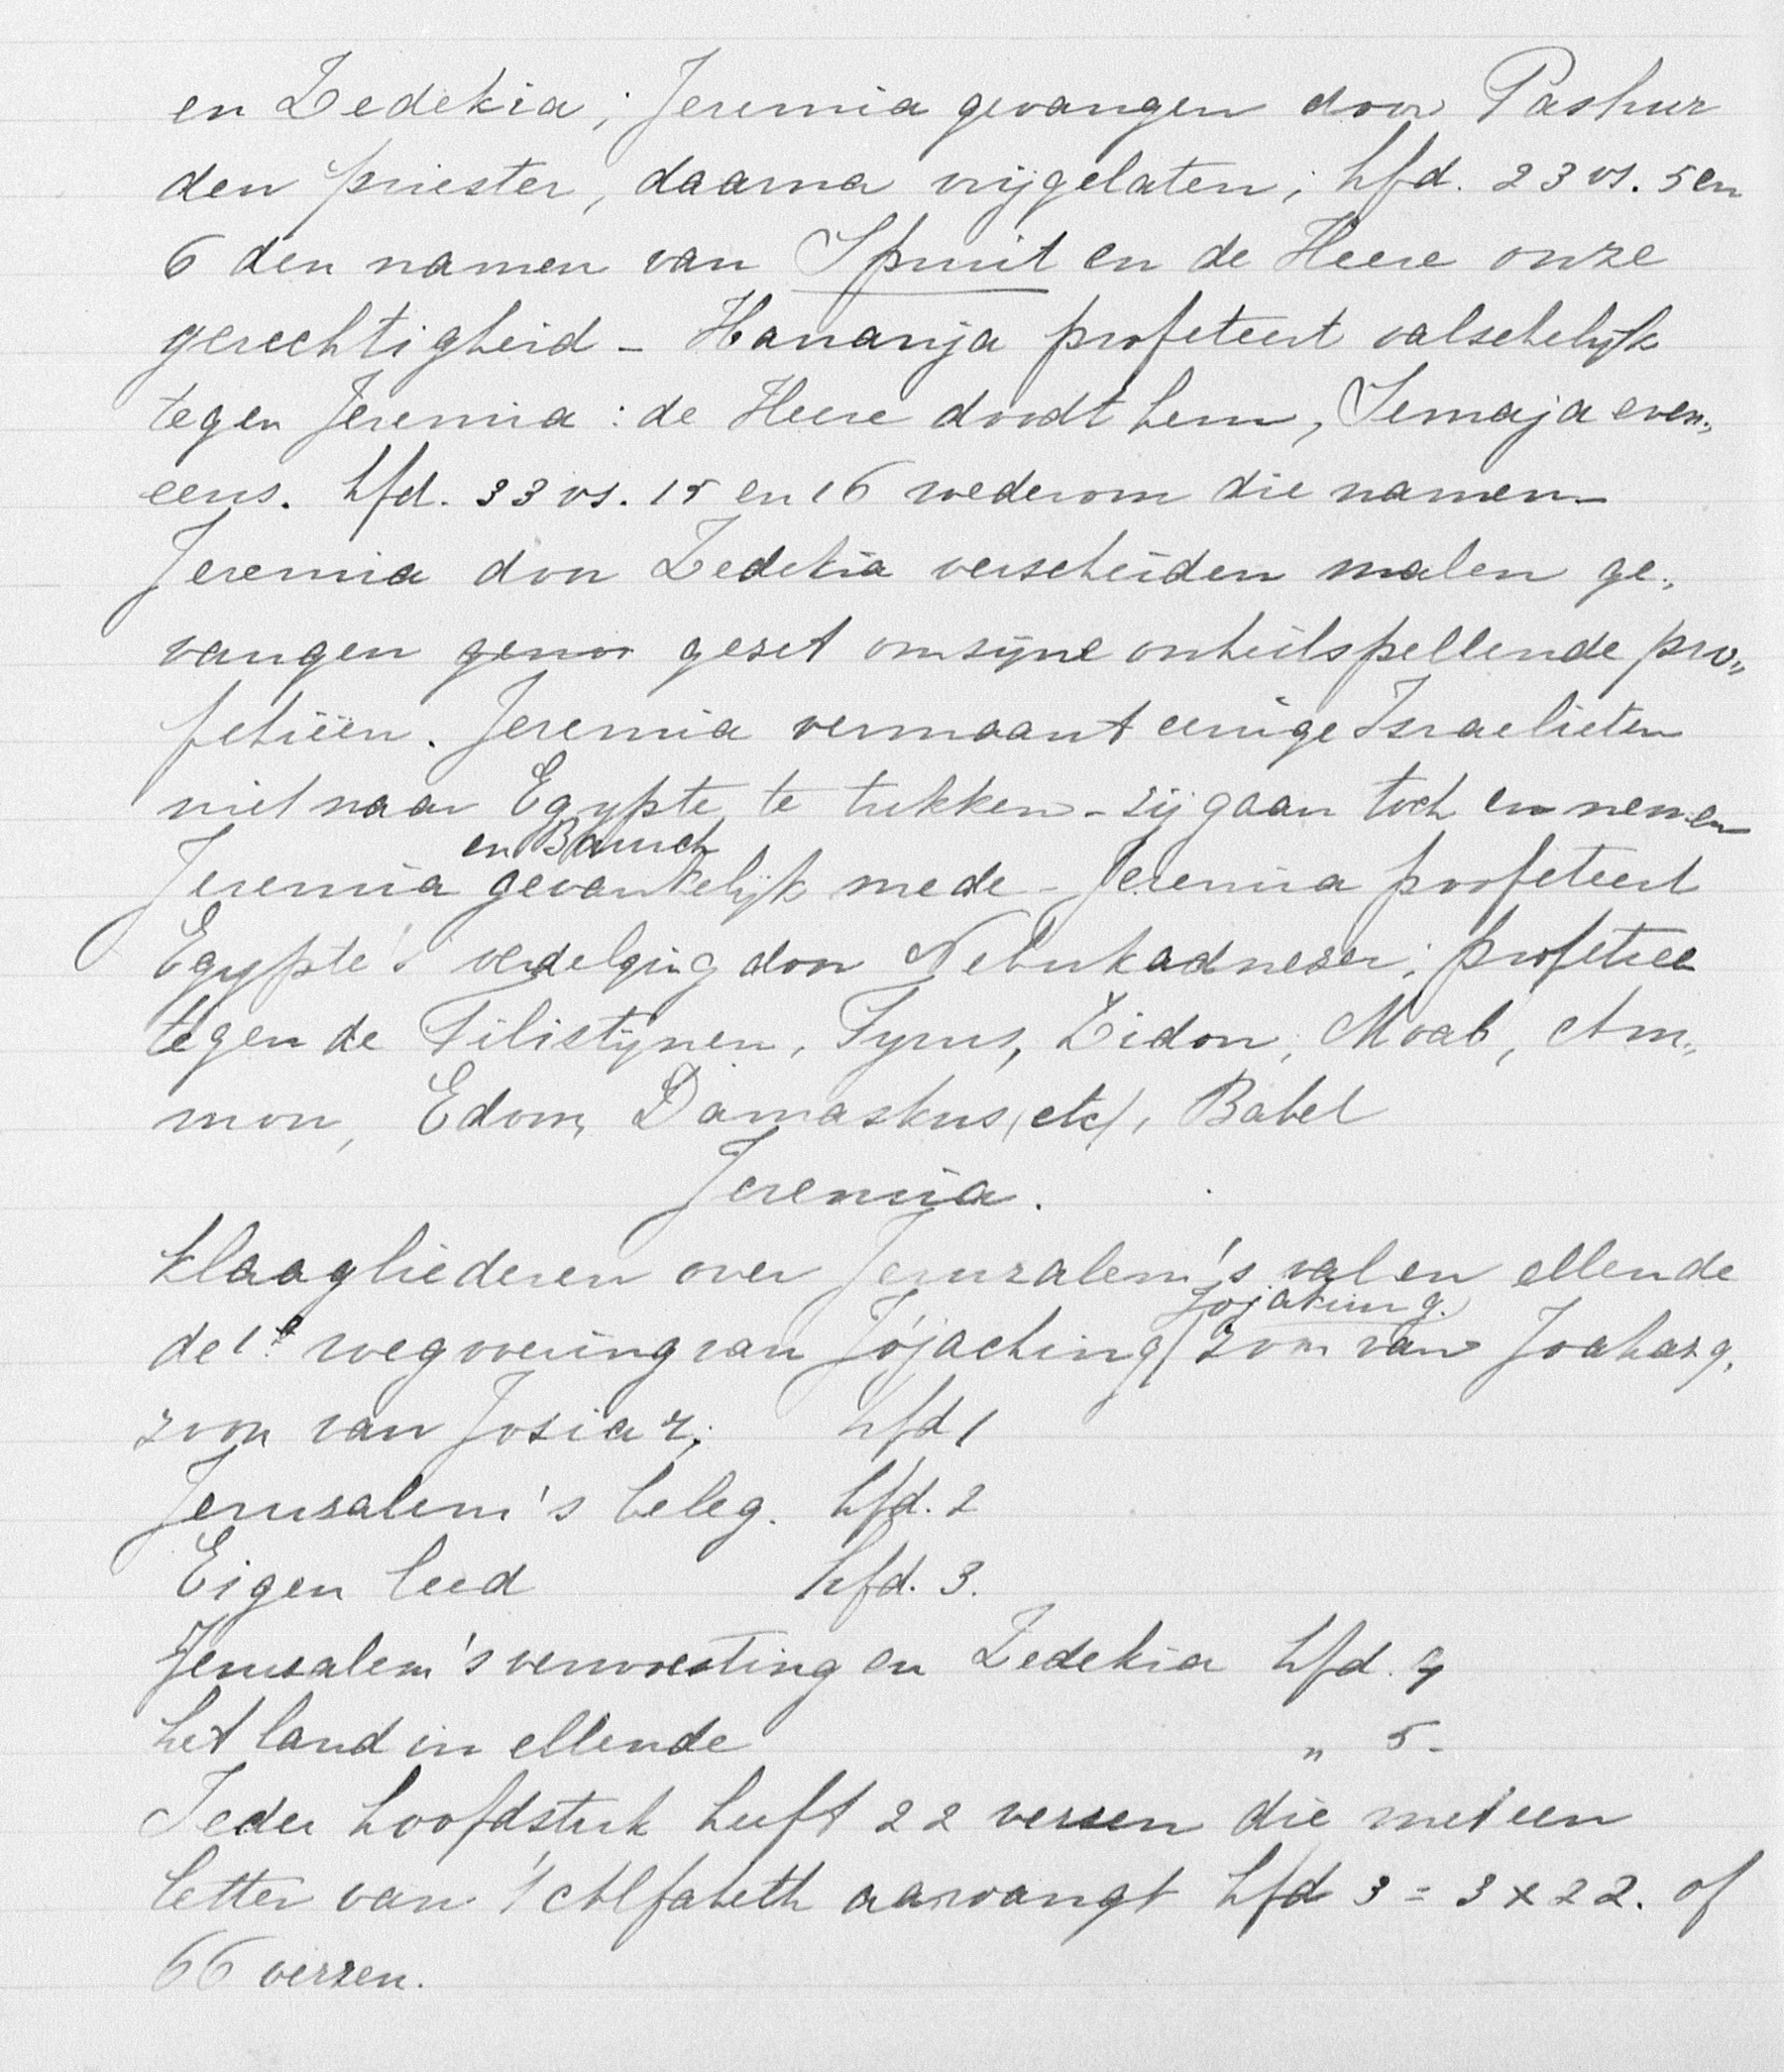 en Zedekia; Jeremia gevangen door Pashur
den priester, daarna vrijgelaten; hfd. 23 vs. 5 en
6 den namen van Spruit en de Heere onze
gerechtigheid - Hananja profeteert valschelijk
tegen Jeremia : de Heere doodt hem, Semaja even„
eens. hfd. 33 vs. 15 en 16 wederom die namen -
Jeremia door Zedekia verscheiden malen ge„
vangen genor gezet om zijne onheilspellende pro„
fetieën. Jeremia vermaant eenige Israelieten
niet naar Egypte te trekken - zij gaan toch en nemen
en Baruch
Jeremia gevankelijk mede - Jeremia profeteert
Egypte's verdelging door Nebukadnezer; profetieen
tegen de Filistijnen, Tyrus, Zidon, Moab, Am„
mon, Edom, Damaskus (etc), Babel
Jeremia.
Klaagliederen over Jeruzalem's val en ellende
Jojakim g.
de 1e wegvoering van Jójachin g/ zoon van Joahaz g.
zoon van Josia z; hfd 1
Jeruzalem's beleg. hfd. 2
Eigen leed hfd. 3.
Jeruzalem's verwoesting en Zedekia hfd. 4
het land in ellende „ 5 -
Ieder hoofdstuk heeft 22 verzen die met een
letter van 't Alfabeth aanvangt hfd 3 = 3 x 22. of
66 verzen.